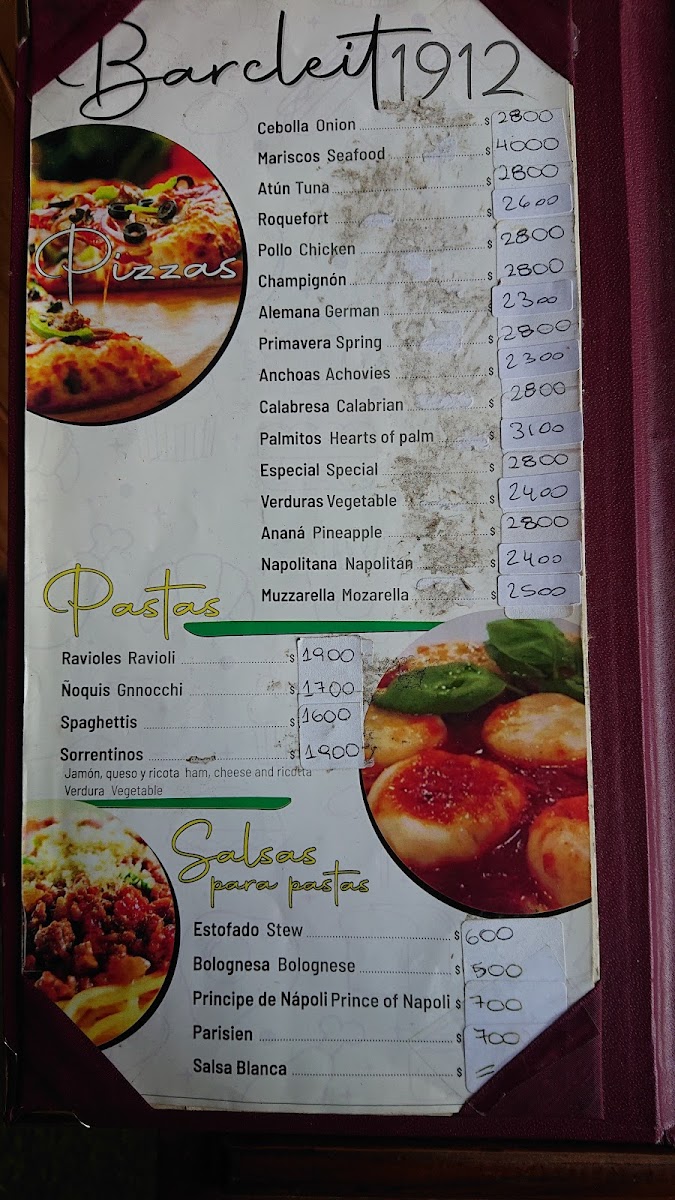 Barcleit 1912
Pizzas
Cebolla Onion $ 2800
Mariscos Seafood $ 4000
Atún Tuna $ 2800
Roquefort $ 2600
Pollo Chicken $ 2800
Champignón $ 2800
Alemana German $ 2300
Primavera Spring $ 2800
Anchoas Achovies $ 2300
Calabresa Calabrian $ 2800
Palmitos Hearts of palm $ 3100
Especial Special $ 2800
Verduras Vegetable $ 2400
Ananá Pineapple $ 2800
Napolitana Napolitan $ 2400
Muzzarella Mozarella $ 2500
Pastas
Ravioles Ravioli $ 1900
Ñoquis Gnnocchi $ 1700
Spaghettis $ 1600
Sorrentinos $ 1900
Jamón, queso y ricota ham, cheese and ricotta
Verdura Vegetable
Salsas
para pastas
Estofado Stew $ 600
Bolognesa Bolognese $ 500
Principe de Nápoli Prince of Napoli $ 700
Parisien $ 700
Salsa Blanca $ =